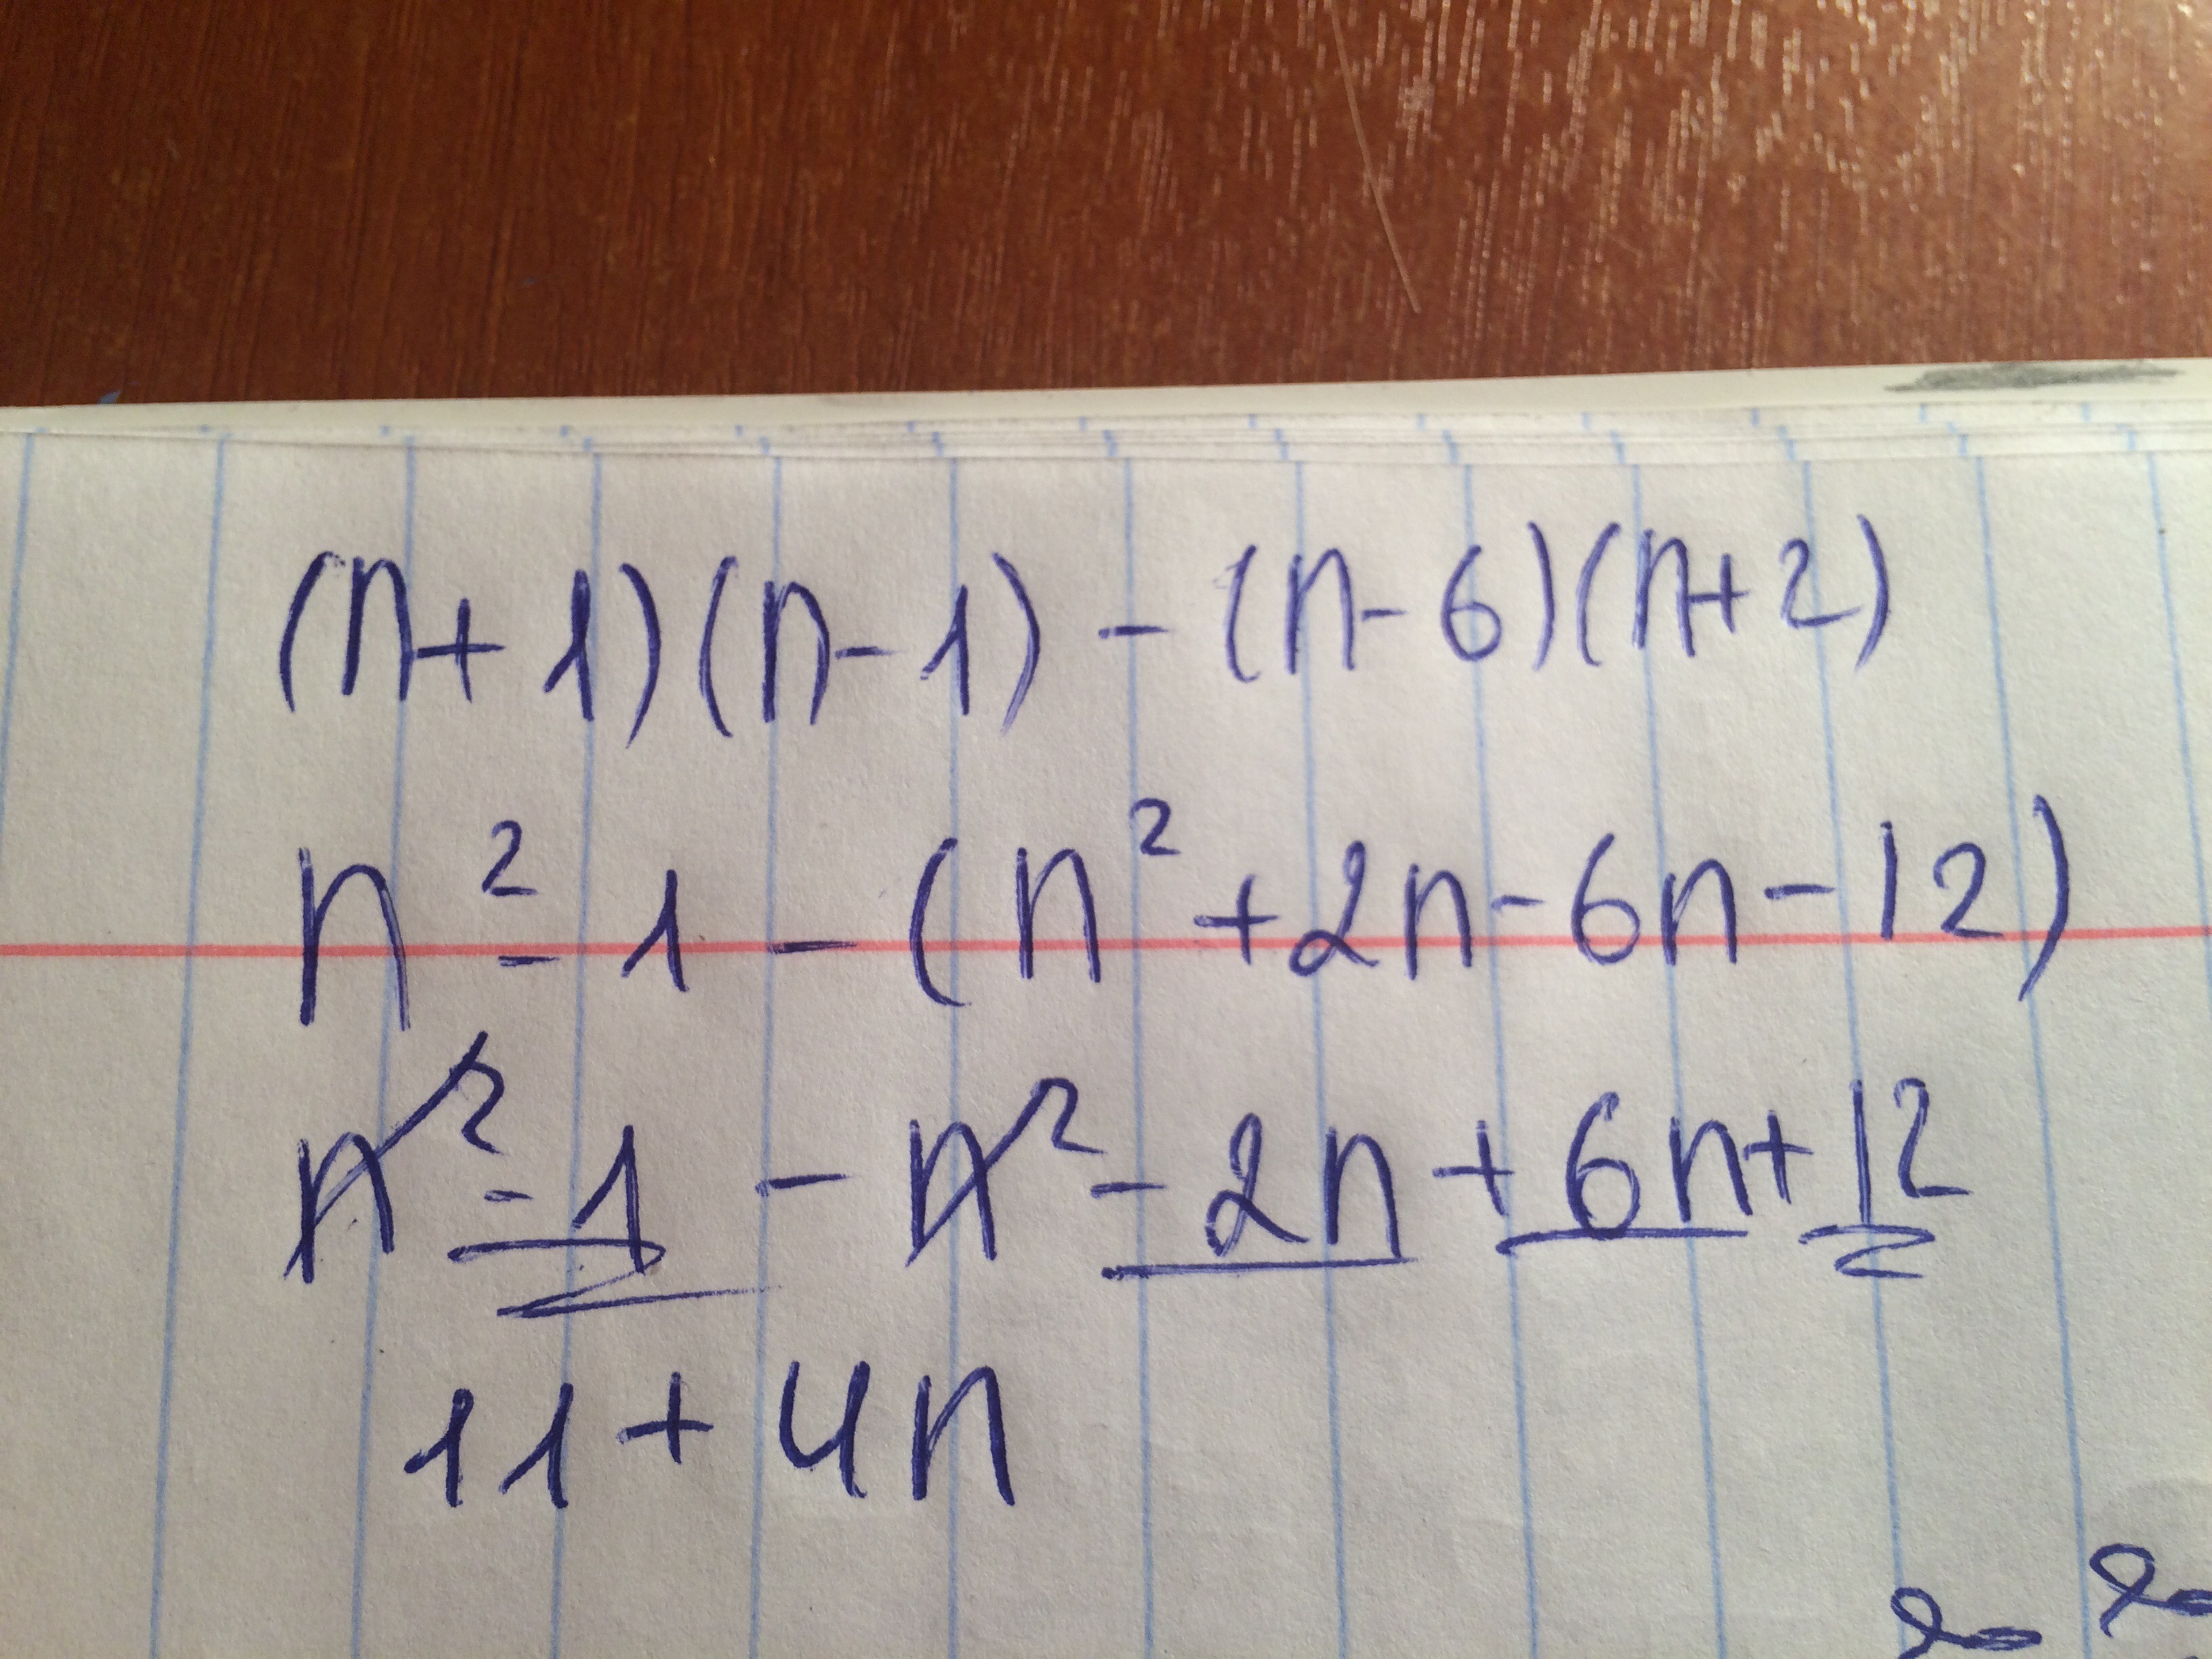 (n+1)(n-1) - (n-6)(n+2)
n² - 1 - (n² + 2n - 6n - 12)
n² - 1 - n² - 2n + 6n + 12
11 + 4n